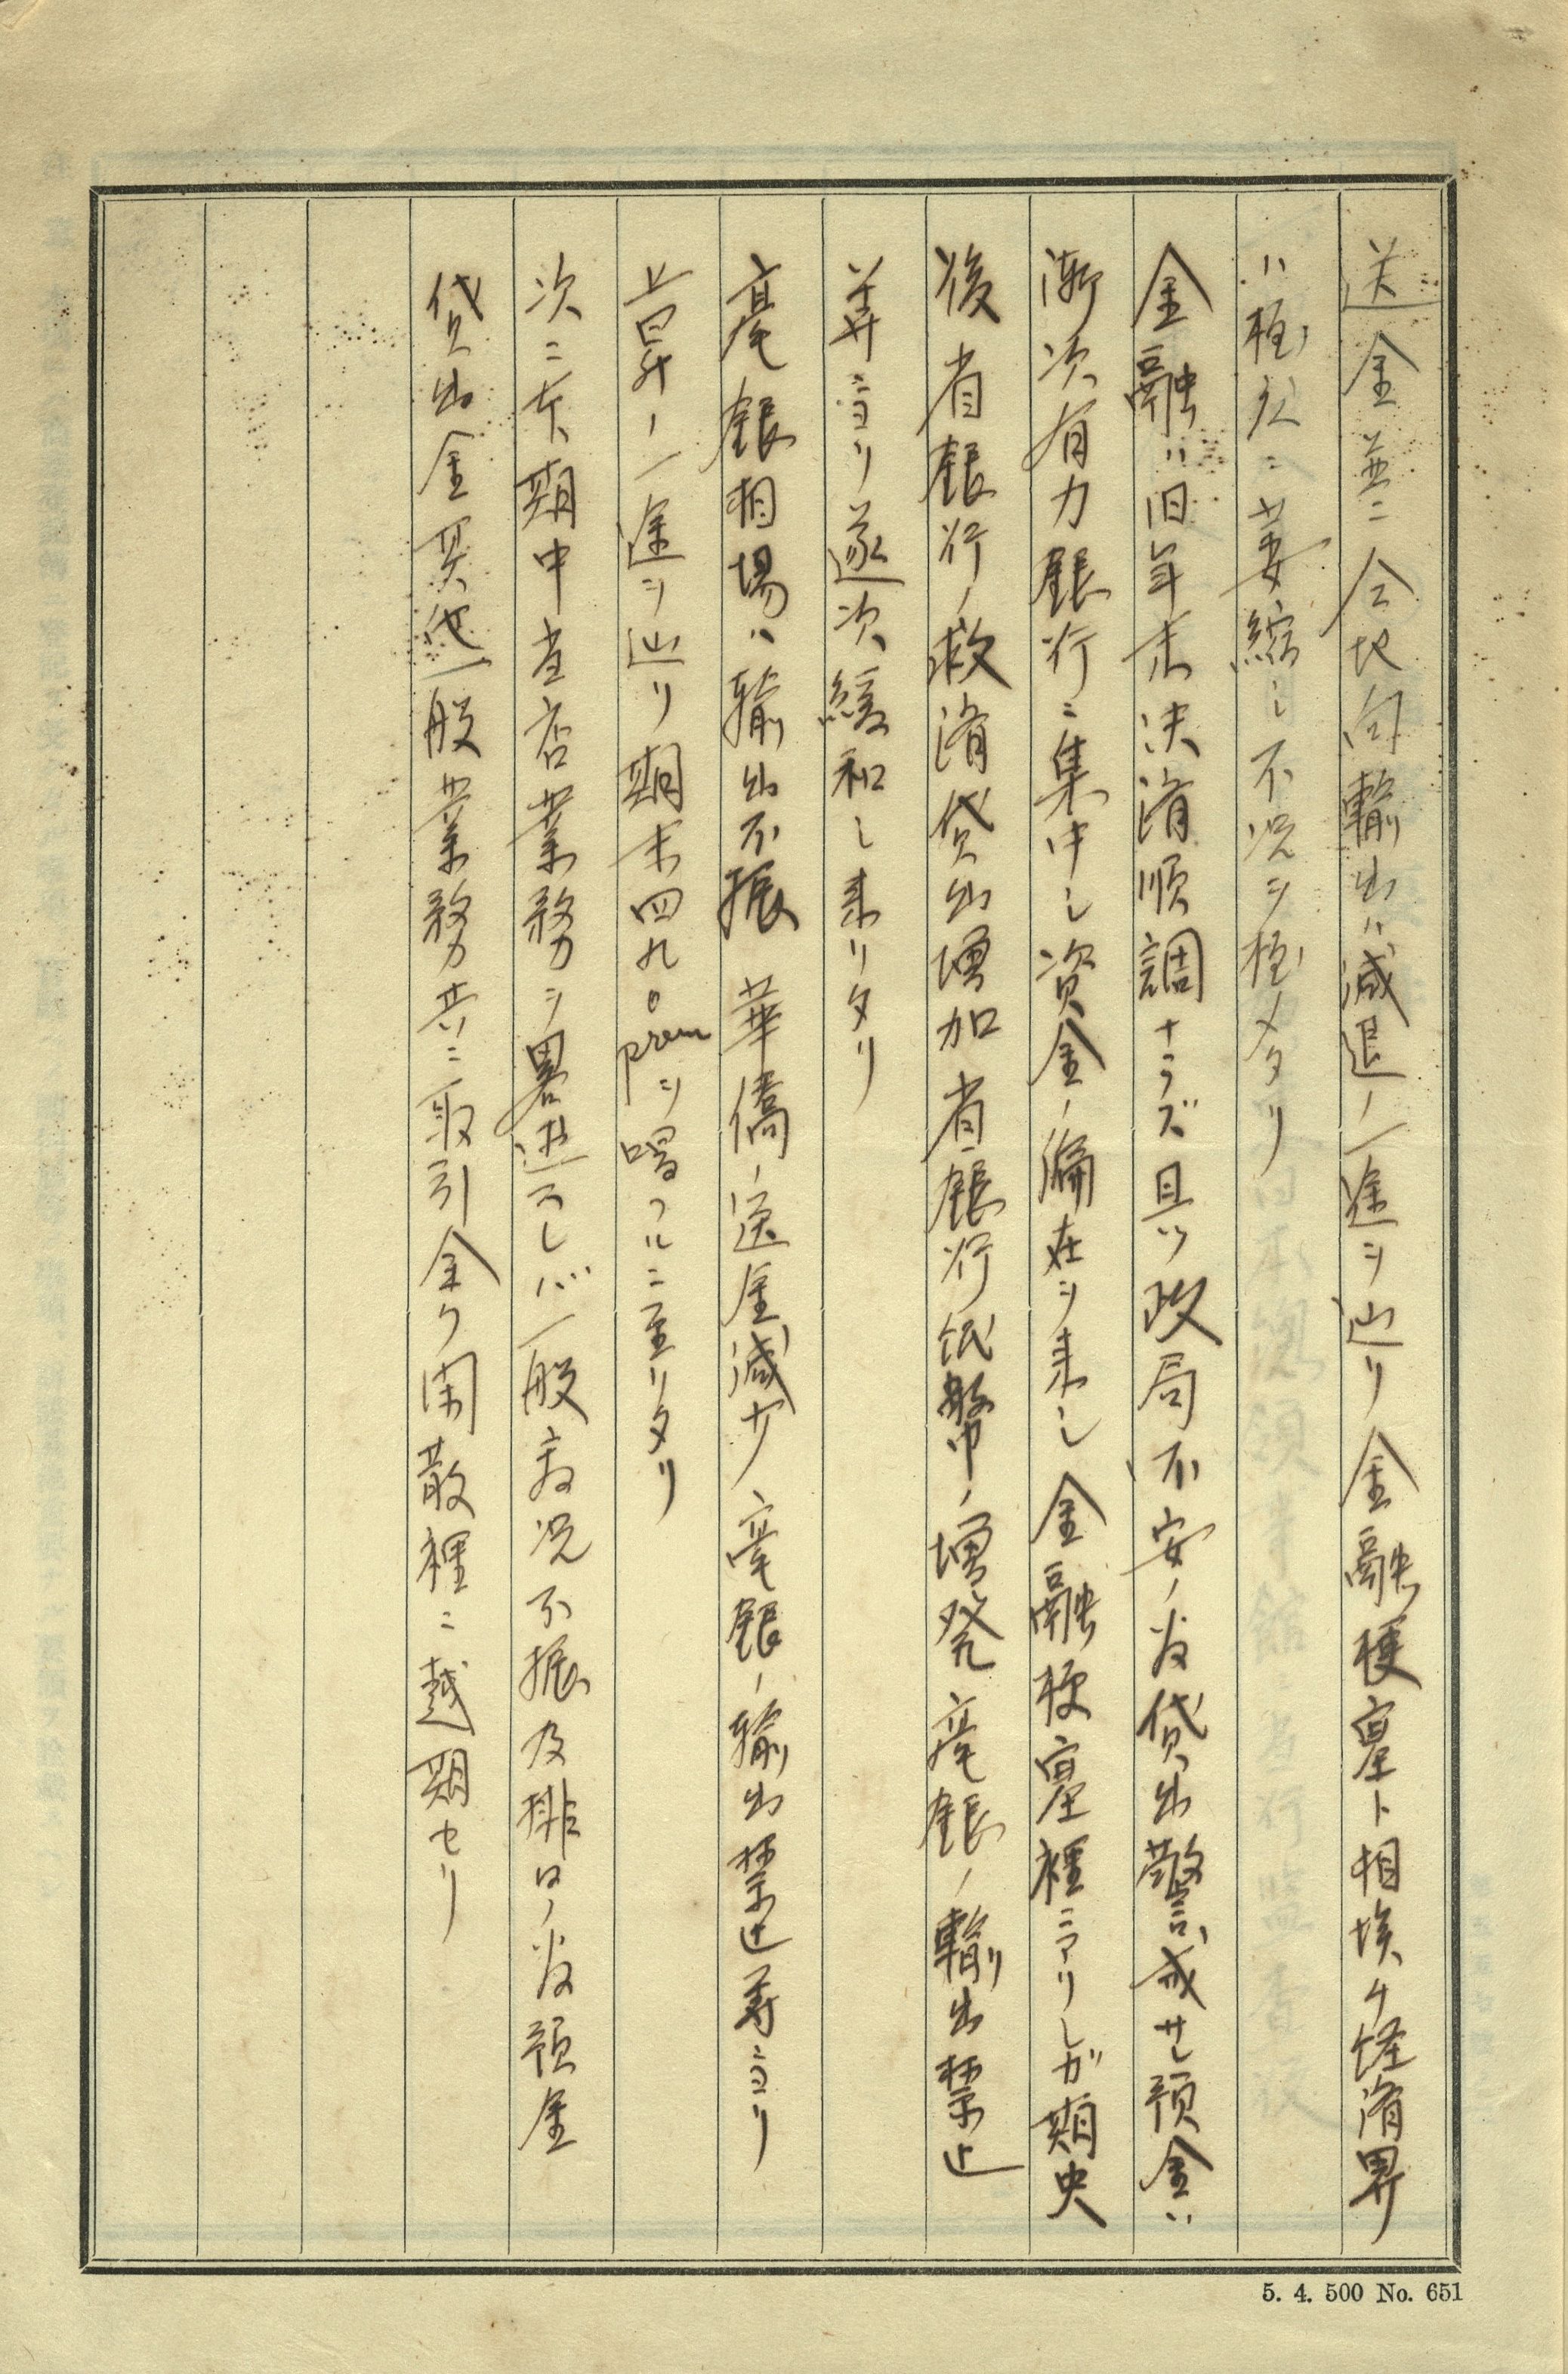 送金並ニ仝地向輸出ハ減退ノ一途ヲ辿リ金融梗塞ト相埃ケ経済界
ハ極度ニ萎縮シ不況ヲ極メタリ
金融ハ旧年末決済順調ナラズ且ツ政局不安ノ為貸出警戒サレ預金ハ
漸次有力銀行ニ集中シ資金ノ偏在ヲ来シ金融梗塞裡ニアリシガ期央
後省銀行ノ救済貸出増加省銀行紙幣ノ増発毫銀ノ輸出禁止
等ニヨリ逐次緩和シ来リタリ
毫銀相場ハ輸出不振華僑ノ送金減少毫銀ノ輸出禁止等ニヨリ
上昇ノ一途ヲ辿リ期末四九% premヲ唱フルニ至リタリ
次ニ本期中当店業務ヲ畧述スレバ一般商況不振及排日ノ為預金
貸出金買為一般業務共ニ取引全ク閑散裡ニ越期セリ
5. 4. 500 No. 651